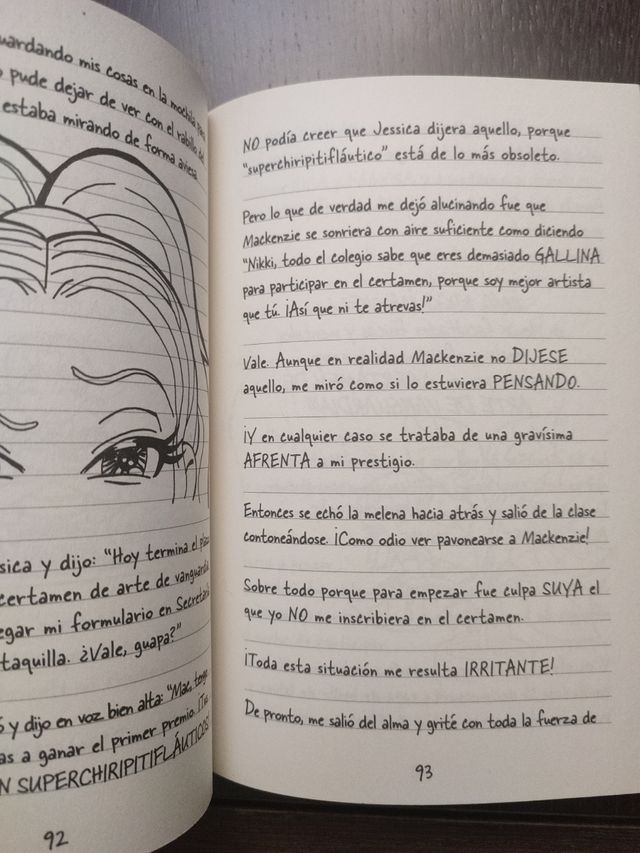 guardando mis cosas en la mochila
pude dejar de ver con el rabillo del
estaba mirando de forma aviesa
sica y dijo: "Hoy termina el
certamen de arte de vanguardia
egar mi formulario en Secretaría
taquilla. ¿Vale, guapa?"
y dijo en voz bien alta: "Mac,
as a ganar el primer premio. ¡Tus
N SUPERCHIRIPITIFLÁUTICOS!
92
NO podía creer que Jessica dijera aquello, porque
"superchiripitifláutico" está de lo más obsoleto.
Pero lo que de verdad me dejó alucinando fue que
Mackenzie se sonriera con aire suficiente como diciendo
"Nikki, todo el colegio sabe que eres demasiado GALLINA
para participar en el certamen, porque soy mejor artista
que tú. ¡Así que ni te atrevas!"
Vale. Aunque en realidad Mackenzie no DIJESE
aquello, me miró como si lo estuviera PENSANDO.
¡Y en cualquier caso se trataba de una gravísima
AFRENTA a mi prestigio.
Entonces se echó la melena hacia atrás y salió de la clase
contoneándose. ¡Como odio ver pavonearse a Mackenzie!
Sobre todo porque para empezar fue culpa SUYA el
que yo NO me inscribiera en el certamen.
¡Toda esta situación me resulta IRRITANTE!
De pronto, me salió del alma y grité con toda la fuerza de
93